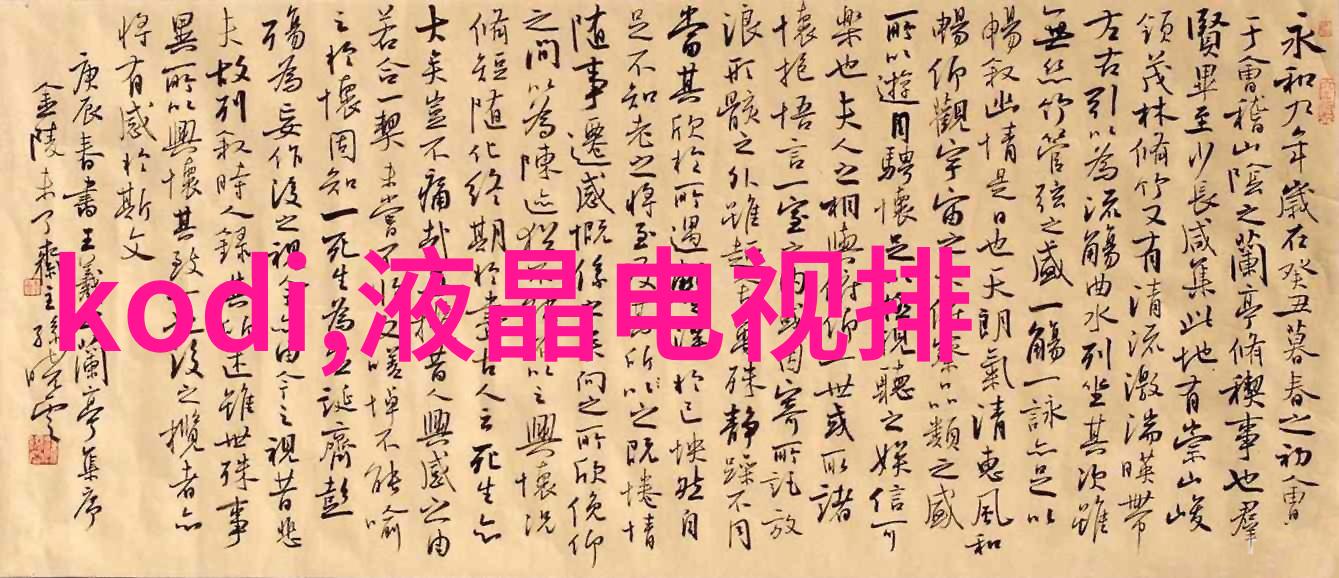 永和九年歲在癸丑暮春之初會
于會稽山陰之蘭亭脩稧事也羣
賢畢至少長咸集此地有崇山峻
領茂林脩竹又有清流激湍暎帶
左右引以為流觴曲水列坐其次雖
無絲竹管弦之盛一觴一詠亦足以
暢敘幽情是日也天朗氣清惠風和
暢仰觀宇宙之大俯察品類之盛
所以遊目騁懷足以極視聽之娛信可
樂也夫人之相與俯仰一世或取諸
懷抱悟言一室之內或因寄所託放
浪形骸之外雖趣舍萬殊靜躁不同
當其欣於所遇暫得於己怏然自
足不知老之將至及其所之既惓情
隨事遷感慨係之矣向之所欣俛仰
之間以為陳迹猶不能不以之興懷況
脩短隨化終期於盡古人云死生亦
大矣豈不痛哉每攬昔人興感之由
若合一契未嘗不臨文嗟悼不能喻
之於懷固知一死生為虛誕齊彭
殤為妄作後之視今亦由今之視昔悲
夫故列敘時人錄其所述雖世殊事
異所以興懷其致一也後之攬者亦
將有感於斯文
庚辰春書王羲之蘭亭集序
金陵未了齋主孫曉雲
kodi,液晶电视排